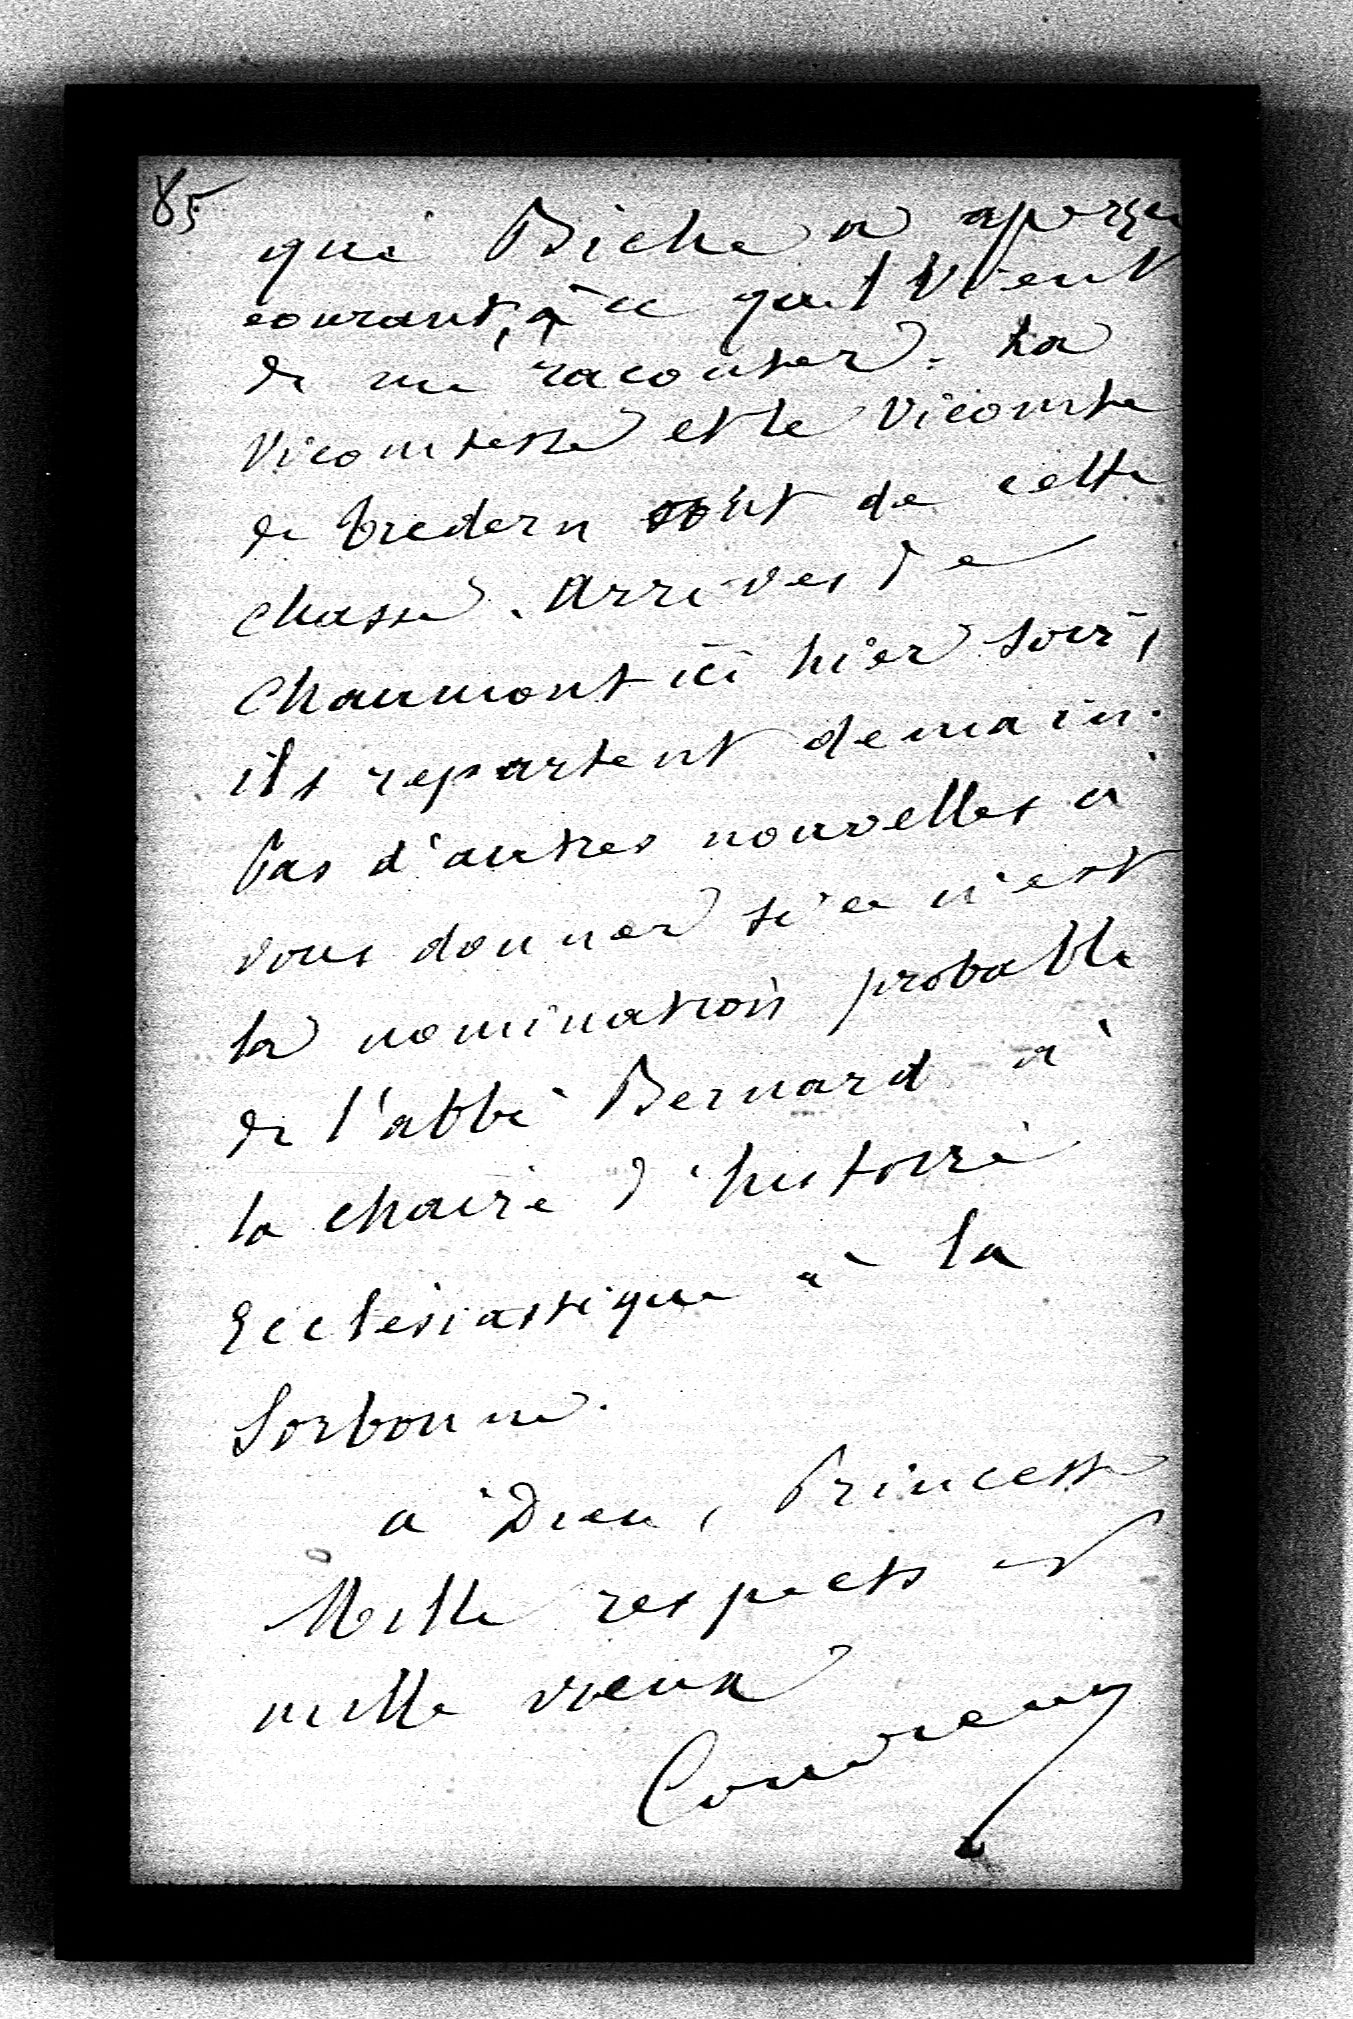 85
que Biche a aperçu
courant, à ce qu'il vient
de me raconter. La
Vicomtesse et le Vicomte
de Tredern sont de cette
chasse. Arrivés de
Chaumont ici hier soir,
ils repartent demain.
Pas d'autres nouvelles à
vous donner si ce n'est
la nomination probable
de l'abbé Bernard à
la chaire d'histoire
Ecclésiastique à la
Sorbonne.
à Dieu, Princesse
Mille respects et
mille vœux